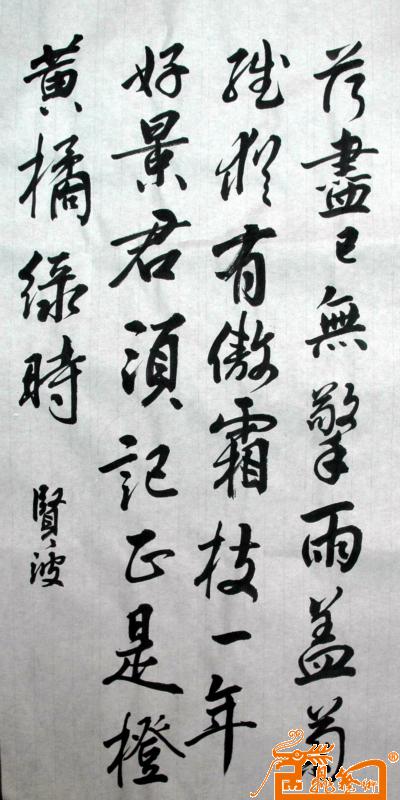 荷盡已無擎雨盖菊
殘猶有傲霜枝一年
好景君須記正是橙
黄橘綠時
賢波